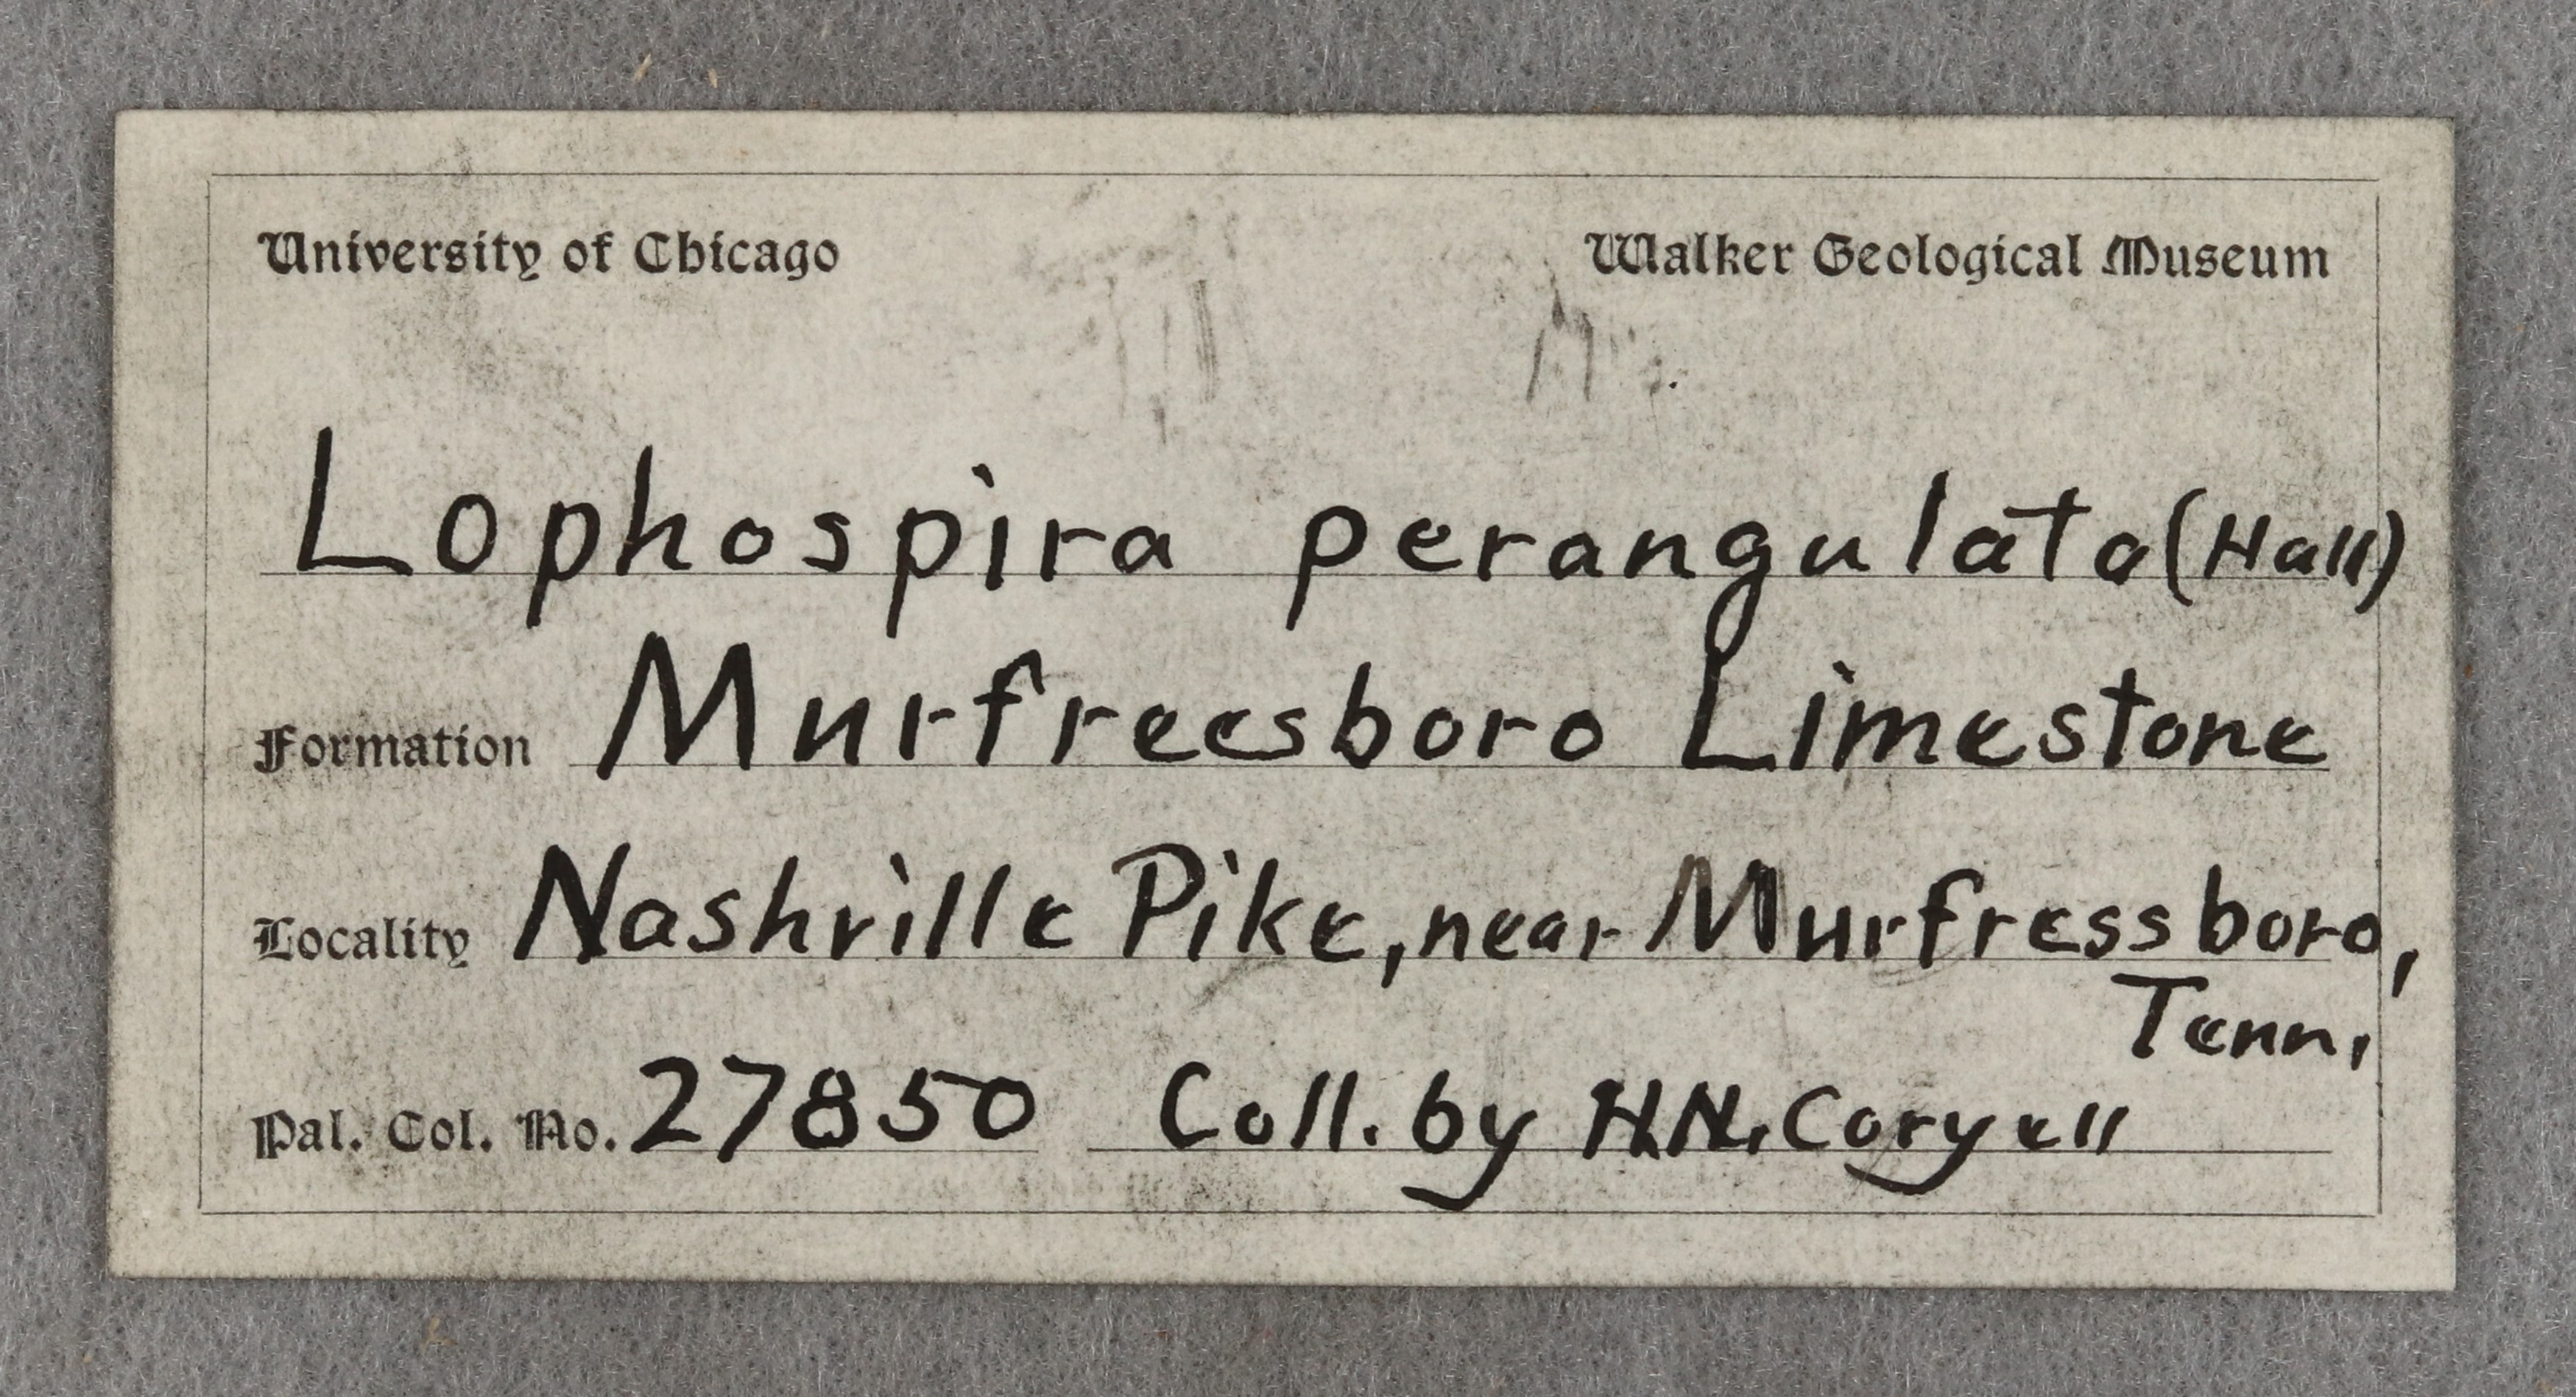 University of Chicago Walker Geological Museum
Lophospira perangulata (Hall)
Formation Murfreesboro Limestone
Locality Nashville Pike, near Murfressboro,
Tenn.
Pal. Col. No. 27850 Coll. by H.N. Coryell